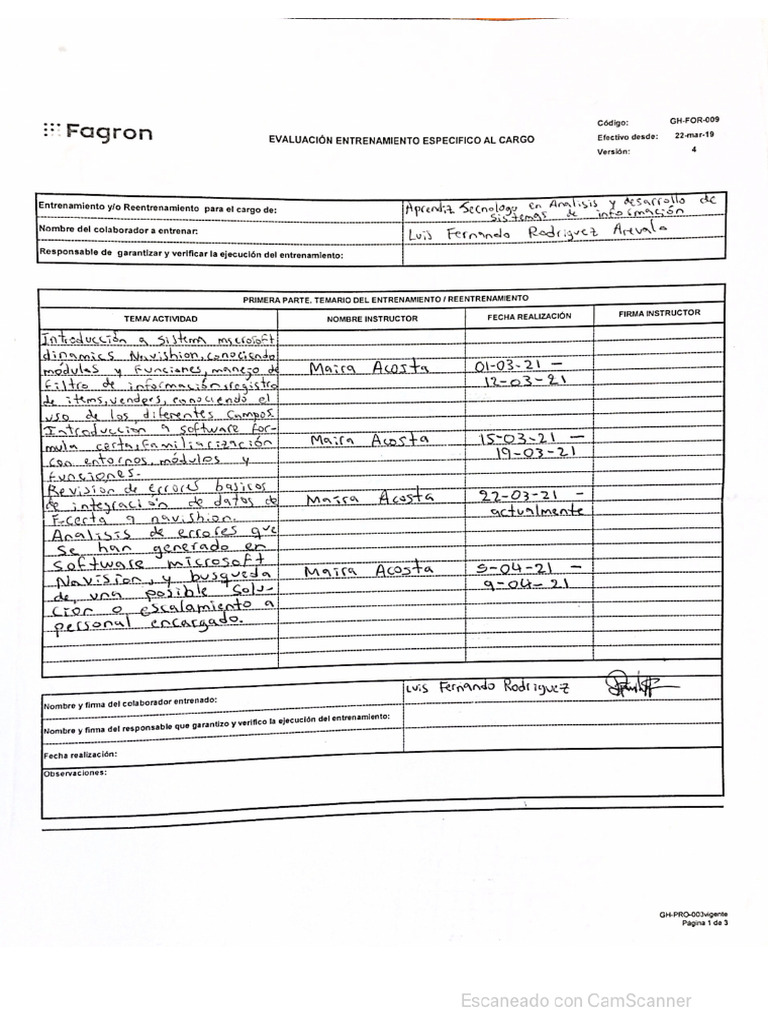 Fagron
EVALUACIÓN ENTRENAMIENTO ESPECIFICO AL CARGO
Código: GH-FOR-009
Efectivo desde: 22-mar-19
Versión: 4
Entrenamiento y/o Reentrenamiento para el cargo de: Aprendiz Tecnologo en Analisis y desarrollo de
sistemas de información
Nombre del colaborador a entrenar: Luis Fernando Rodriguez Arevalo
Responsable de garantizar y verificar la ejecución del entrenamiento:
PRIMERA PARTE. TEMARIO DEL ENTRENAMIENTO / REENTRENAMIENTO
TEMA/ ACTIVIDAD NOMBRE INSTRUCTOR FECHA REALIZACIÓN FIRMA INSTRUCTOR
Introducción a sistema microsoft
dinamics Navishion, conociendo
módulos y funciones, manejo de Maira Acosta 01-03-21 –
filtro de información, registro 12-03-21
de items, venders, conociendo el
uso de los diferentes campos.
Introduccion a software for-
mula certa, familiarización Maira Acosta 15-03-21 –
con entornos, módulos y 19-03-21
funciones.
Revision de errores basicos Maira Acosta 22-03-21 –
de integración de datos de actualmente
F.certa a navishion.
Analisis de errores que
se han generado en
software microsoft Maira Acosta 5-04-21 –
Navision, y busqueda 9-04-21
de una posible solu-
cion o escalamiento a
personal encargado.
Nombre y firma del colaborador entrenado: Luis Fernando Rodriguez
Nombre y firma del responsable que garantizo y verifico la ejecución del entrenamiento:
Fecha realización:
Observaciones:
GH-PRO-003vigente
Página 1 de 3
Escaneado con CamScanner